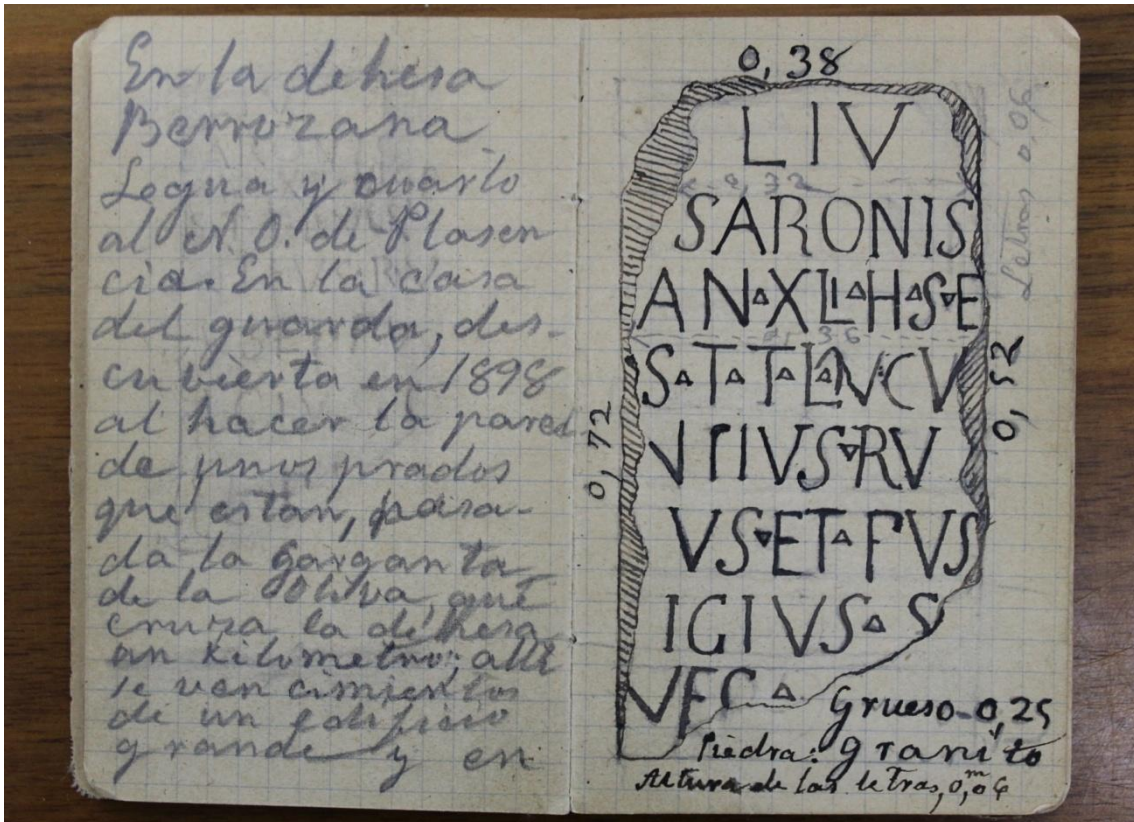 En la dehesa
Berrozana.
Legua y cuarto
al N.O. de Plasen
cia. En la casa
del guarda, des-
cubierta en 1898
al hacer la pared
de unos prados
que estan, pasa-
da la garganta
de la Oliva, que
cruza la dehesa
un kilometro; alli
se ven cimientos
de un edificio
grande y en
0,38
LIV
0,32
SARONIS
AN▵XLI▵H▵S▿E
0,36
S▵T▵T▵L▵NCV
NTIVS▿RV
VS▿ET▵FVS
IGIVS▵S
VFC▵
Letras 0,06
0,52
0,72
Grueso-0,25
Piedra: granito
Altura de las letras, 0,ᵐ06